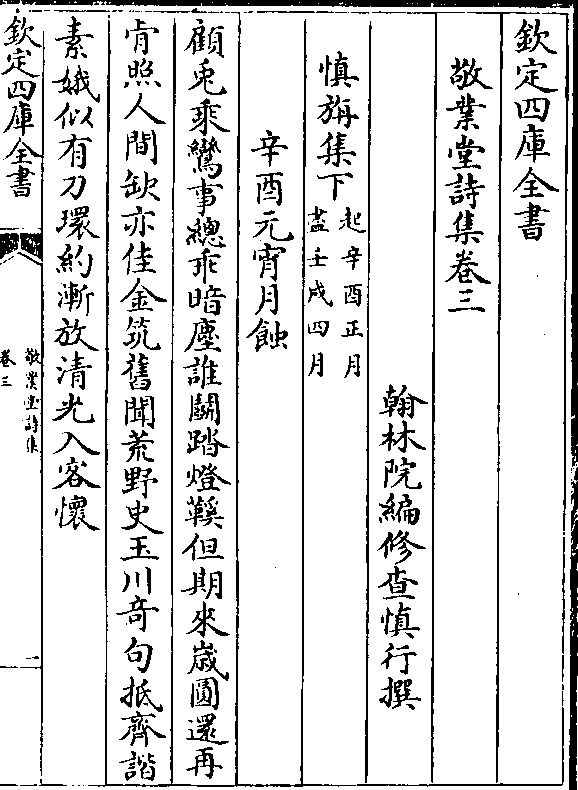 欽定四庫全書
敬業堂詩集卷三
翰林院編修查慎行撰
慎旃集下
起辛酉正月
盡壬戌四月
辛酉元宵月蝕
顧兎乘鸞事總乖暗塵誰鬭踏燈鞵但期來嵗圓還再
肯照人間缺亦佳金筑舊聞荒野史玉川奇句抵齊諧
素娥似有刀環約漸放清光入客懷
欽定四庫全書
敬業堂詩集
卷三
一